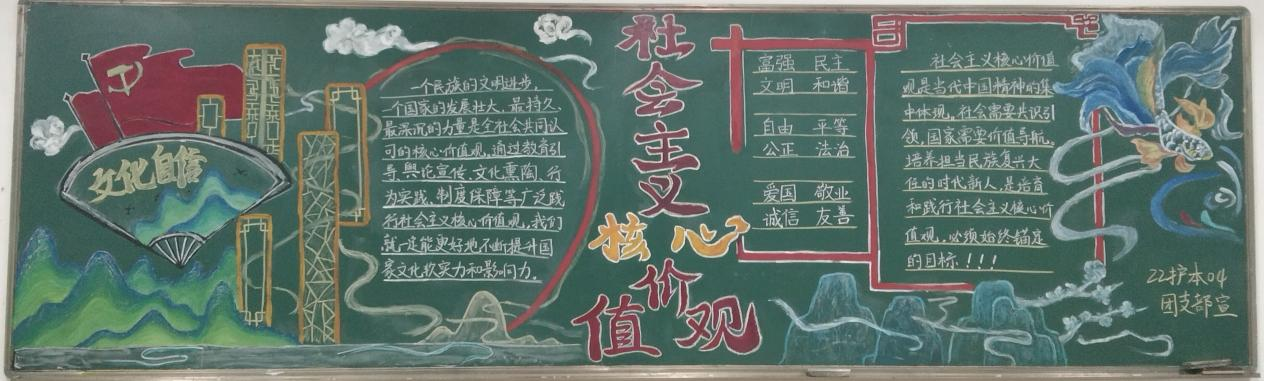 文化自信
一个民族的文明进步，
一个国家的发展壮大、最持久、
最深沉的力量是全社会共同认
可的核心价值观，通过教育引
导、舆论宣传、文化熏陶、行
为实践、制度保障等广泛践
行社会主义核心价值观，我们
就一定能更好地不断提升国
家文化软实力和影响力。
社
会
主
义
核心
价
值观
富强 民主
文明 和谐
自由 平等
公正 法治
爱国 敬业
诚信 友善
社会主义核心价值
观是当代中国精神的集
中体现，社会需要共识引
领，国家需要价值导航。
培养担当民族复兴大
任的时代新人，是培育
和践行社会主义核心价
值观，必须始终锚定
的目标！！！
22护本04
团支部宣